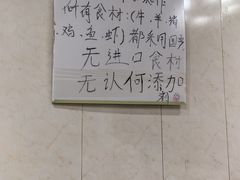 所有食材:(牛、羊、猪
.鸡、鱼、虾)都采用国产
无进口食材
无认何添加
剂